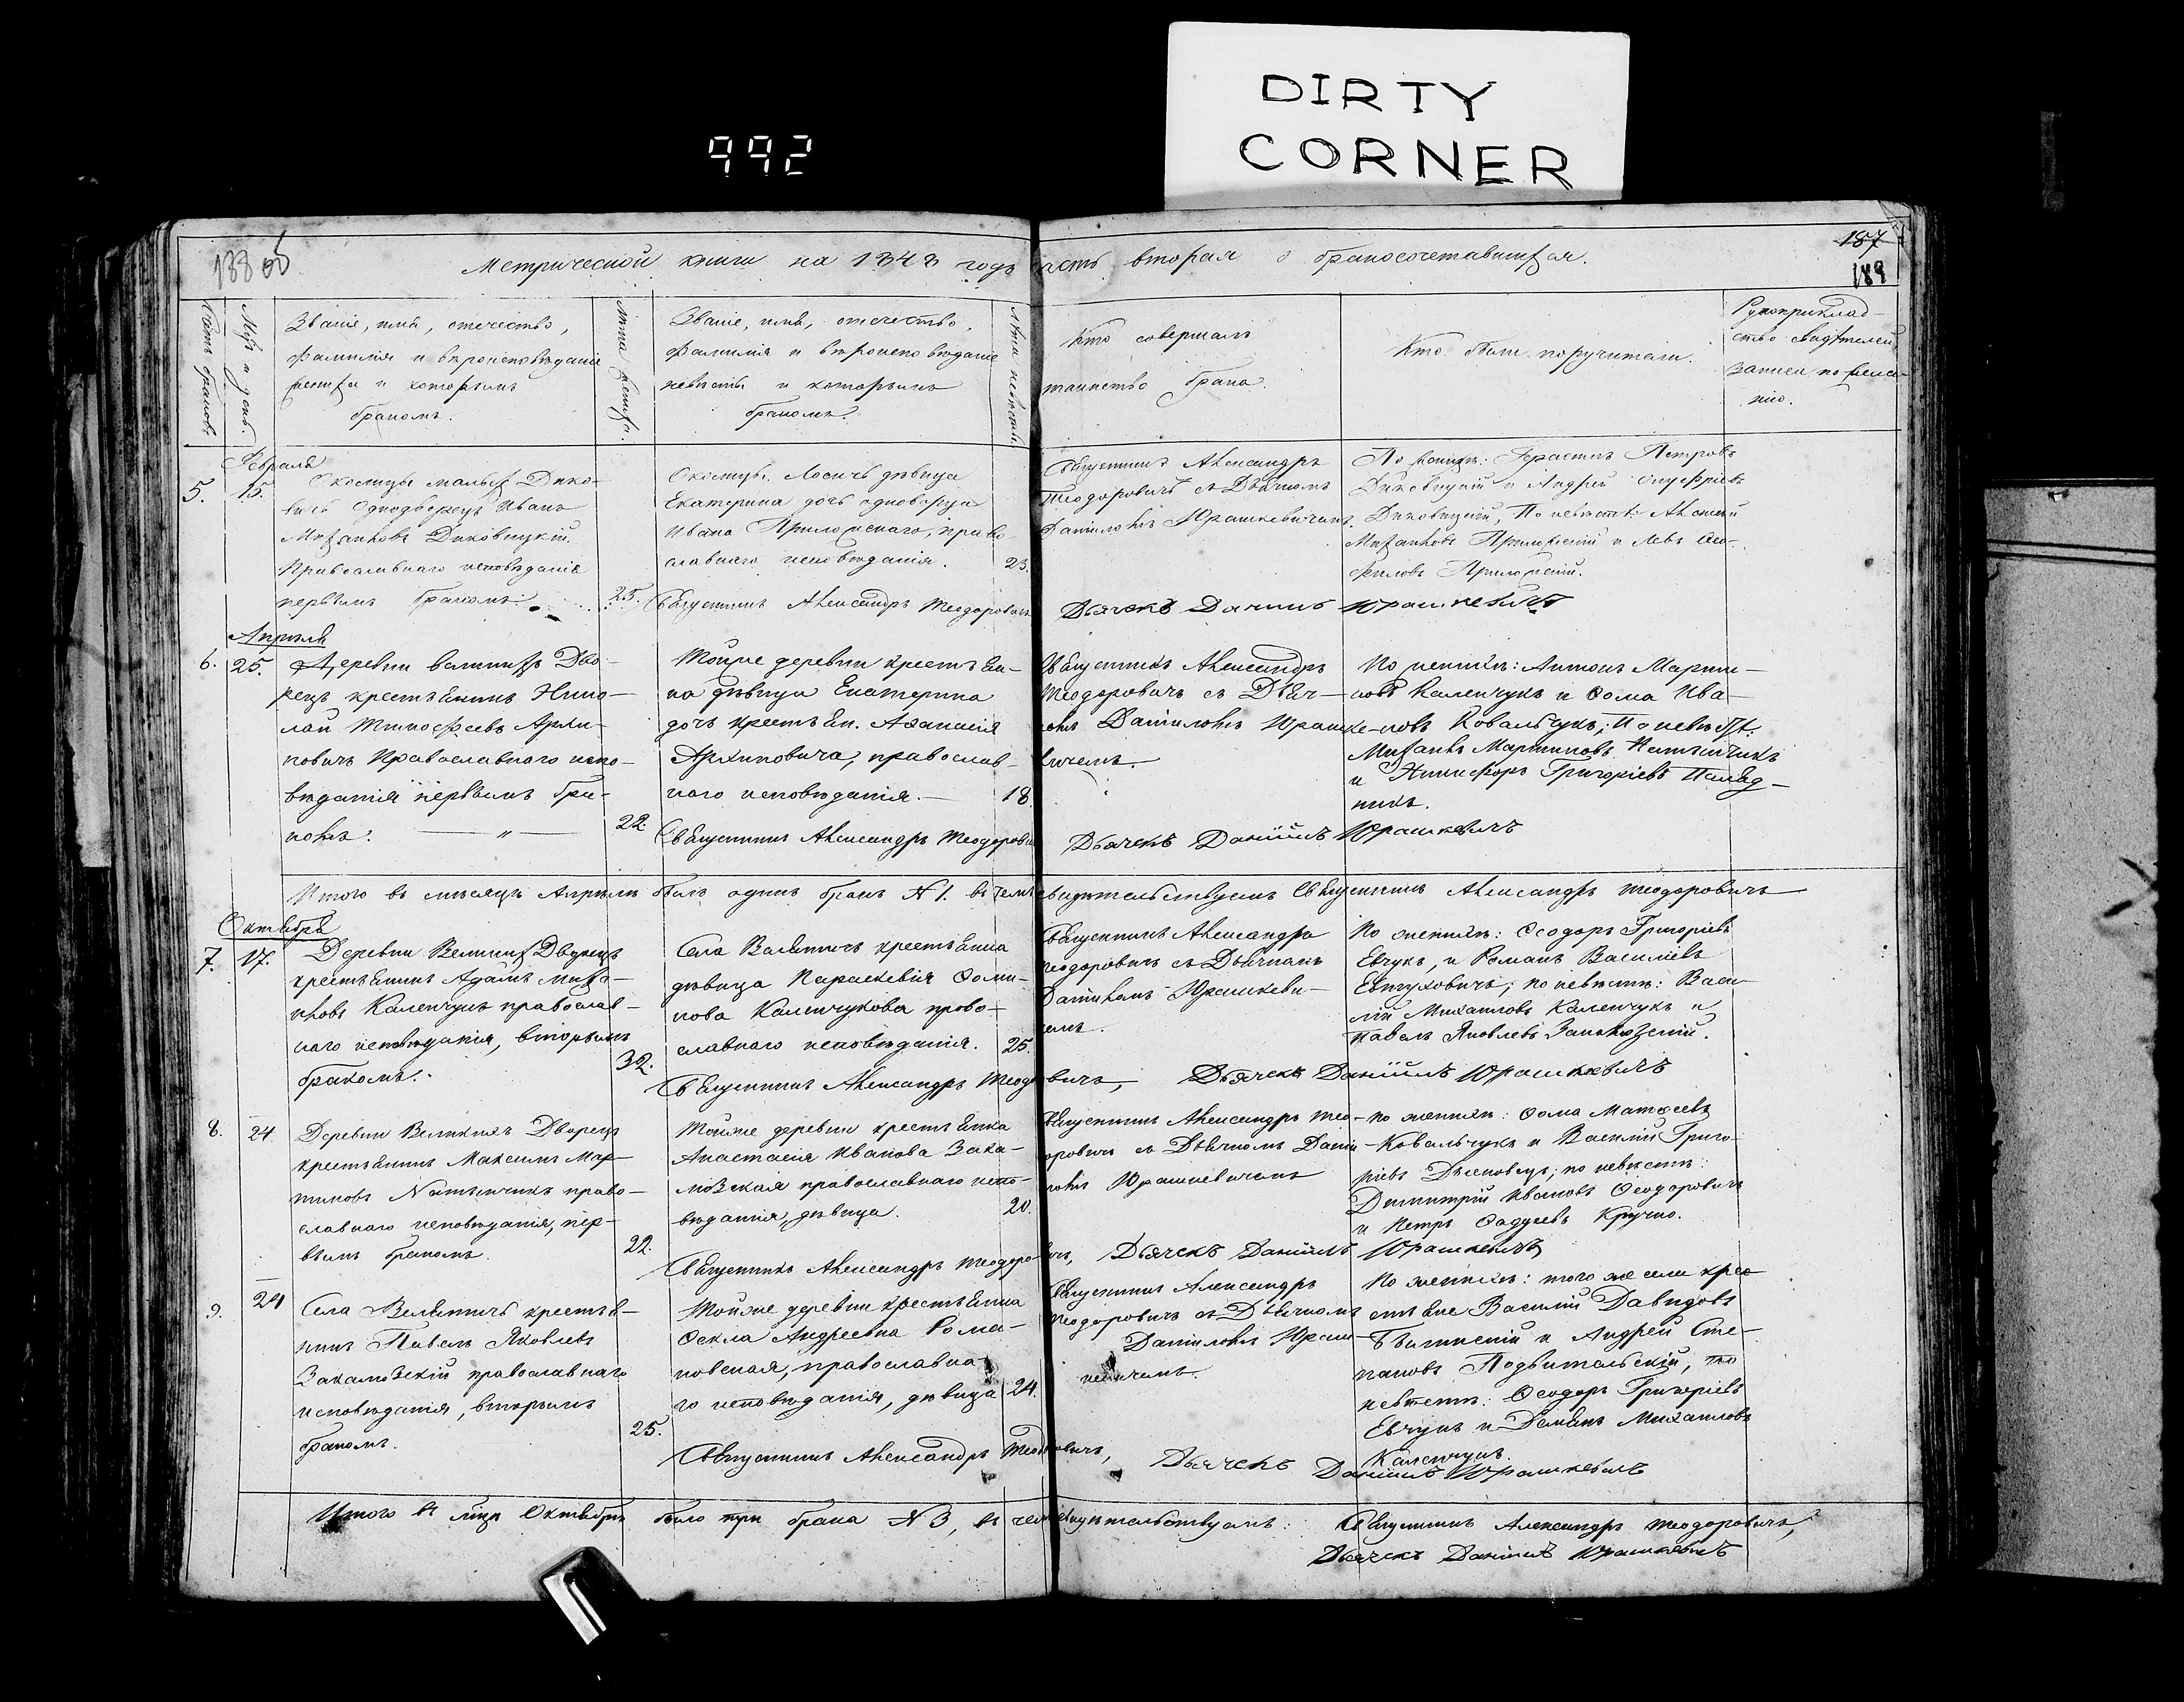 DIRTY
CORNER
992
188 об
187
189
Метрической книги на 1848 годъ часть вторая о бракосочетавшихся.
Счетъ браковъ.
Мѣс. и день.
Званіе, имя, отечество,
фамилія и вѣроисповѣданіе
жениха и которымъ
бракомъ.
Лѣта жениха.
Званіе, имя, отечество,
фамилія и вѣроисповѣданіе
невѣсты и которымъ
бракомъ.
Лѣта невѣсты.
Кто совершалъ
таинство брака.
Кто были поручители.
Рукоприклад-
ство свидѣтелей
записи по жела-
нію.
Февраля
5.
15.
Околицы малых Дико-
вичъ Однодворецъ Иванъ
Михаиловъ Диковицкій
Православнаго исповѣданія
первымъ бракомъ.
25.
Околицы Лосичь дѣвица
Екатерина дочь однодворца
Ивана , право-
славнаго исповѣданія.
23.
Священникъ Александръ
Теодоровичъ съ Дьячкомъ
Даніиломъ Юрашкевичемъ.
По жених: Петровъ
Диковицкій и Андрей Онуфріевъ
Диковицкій, По невѣстѣ: Алексій
Михаиловъ и Левъ

Священникъ Александръ Теодоровичъ
Дьячекъ Даніилъ Юрашкевичъ
Апрѣля
6.
25.
Деревни великихъ Дво-
рецъ крестьянинъ Нико-
лай Тимофеевъ Архи-
повичъ Православнаго испо-
вѣданія первымъ бра-
комъ.
22.
Тойже деревни крестьян-
ка дѣвица Екатерина
дочь крестьян. Аѳанасія
Архиповича, православ-
наго исповѣданія.
18.
Священникъ Александръ
Теодоровичъ съ Дьяч-
комъ Даніиломъ Юрашке-
вичемъ.
По женихѣ: Антонъ Марти-
новъ Каленчукъ и Ѳома Ива-
новъ Ковальчукъ; По невѣстѣ.
Михаилъ Мартиновъ Натынчикъ
и Никифоръ Григоріевъ
никъ.
Священникъ Александръ Теодорович
Дьячекъ Даніилъ Юрашкевичъ
Итого въ мѣсяцѣ Апрѣлѣ былъ одинъ бракъ N 1. въ чемъ свидѣтельствуемъ Священникъ Александръ Теодоровичъ
Октября
7.
17.
Деревни Великих Дворецъ
крестьянинъ Адамъ Миха-
иловъ Каленчукъ православ-
наго исповѣданія, вторымъ
бракомъ.
32.
Села Велятичъ крестьянка
дѣвица Параскевія Ѳоми-
нова Каленчукова право-
славнаго исповѣданія.
25.
Священникъ Александръ
Теодоровичъ съ Дьячкомъ
Даніиломъ Юрашкеви-
чемъ.
По женихѣ: Ѳеодоръ Григоріевъ
Евчукъ, и Романъ Василіевъ
Евтуховичъ; по невѣстѣ: Васи-
лій Михаиловъ Каленчукъ и
Павелъ Яковлевъ Закамозскій.
Священникъ Александръ Теодоровичъ, Дьячекъ Даніилъ Юрашкевичъ
8.
24.
Деревни Великихъ Дворецъ
крестьянинъ Максимъ Мар-
тиновъ Натынчикъ право-
славнаго исповѣданія, пер-
вымъ бракомъ.
22.
Тойже деревни крестьянка
Анастасія Иванова Зака-
мозская православнаго испо-
вѣданія, дѣвица.
20.
Священникъ Александръ Тео-
доровичъ съ Дьячкомъ Дані-
иломъ Юрашкевичемъ
По женихѣ: Ѳома Матѳеевъ
Ковальчукъ и Василій Григо-
ріевъ ; по невѣстѣ:
Димитрій Ивановъ Ѳеодоровичъ
и Петръ Ѳадуевъ Кручко.
Священникъ Александръ Теодоровичъ, Дьячекъ Даніилъ Юрашкевичъ
9.
24
Села Велятичъ крестья-
нинъ Павелъ Яковлевъ
Закамозскій православнаго
исповѣданія, вторымъ
бракомъ.
25.
Тойже деревни крестьянка
Ѳекла Андреевна Рома-
новская, православна-
го исповѣданія, дѣвица
24.
Священникъ Александръ
Теодоровичъ съ Дьячкомъ
Даніиломъ Юраш-
кевичемъ.
По женихѣ: того же села крес-
тьяне Василій Давидовъ
и Андрей Сте-
пановъ Подвитальскій, по
невѣстѣ: Ѳеодоръ Григоріевъ
Евчукъ и Демьянъ Михаиловъ
Каленчукъ.
Священникъ Александръ Теодоровичъ, Дьячекъ Даніилъ Юрашкевичъ
Итого въ мцѣ Октябрѣ было три брака N 3, въ чемъ свидѣтельствуемъ: Священникъ Александръ Теодоровичъ,
Дьячекъ Даніилъ Юрашкевичъ